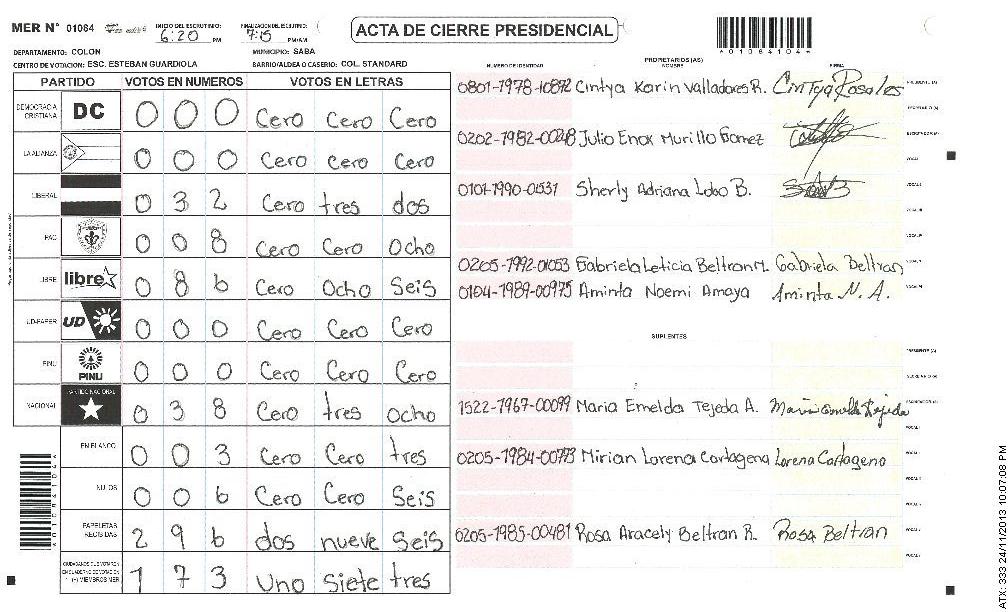 MER N° 01084
INICIO DEL ESCRUTINIO: 6:20 PM
FINALIZACION DEL ESCRUTINIO: 7:15 PM/AM
ACTA DE CIERRE PRESIDENCIAL
*0108104*
DEPARTAMENTO: COLON
MUNICIPIO: SABA
CENTRO DE VOTACION: ESC. ESTEBAN GUARDIOLA
BARRIO/ALDEA O CASERIO: COL. STANDARD
PARTIDO VOTOS EN NUMEROS VOTOS EN LETRAS
DEMOCRACIA CRISTIANA DC 0 0 0 Cero Cero Cero
LA ALIANZA 0 0 0 Cero Cero Cero
LIBERAL 0 3 2 Cero tres dos
PAC 0 0 8 Cero Cero Ocho
LIBRE libre 0 8 6 Cero Ocho Seis
UD-FAPER UD 0 0 0 Cero Cero Cero
PINU PINU 0 0 0 Cero Cero Cero
NACIONAL PARTIDO NACIONAL 0 3 8 Cero tres Ocho
EN BLANCO 0 0 3 Cero Cero tres
NULOS 0 0 6 Cero Cero Seis
PAPELETAS RECIBIDAS 2 9 6 dos nueve Seis
CIUDADANOS QUE VOTARON EN CUADERNO DE VOTACION (+) MIEMBROS MER 1 7 3 Uno Siete tres
PROPIETARIOS (AS)
NUMERO DE IDENTIDAD NOMBRE FIRMA
0801-1978-10872 Cintya Karin Valladares R. Cintya Rosales PRESIDENTE (A)
SECRETARIO (A)
0202-1982-0028 Julio Enox Murillo Gomez ESCRUTADOR (A)
VOCAL I
0101-1990-01531 Sherly Adriana Lobo B. VOCAL II
VOCAL III
VOCAL IV
0205-1992-01053 Gabriela Leticia Beltran M. Gabriela Beltran VOCAL V
0104-1989-00975 Aminta Noemi Amaya Aminta N. A. VOCAL VI
SUPLENTES
PRESIDENTE (A)
SECRETARIO (A)
1522-1967-00099 Maria Emelda Tejeda A. Maria Emelda Tejeda ESCRUTADOR (A)
VOCAL I
0205-1984-00773 Mirian Lorena Cartagena Lorena Cartagena VOCAL II
VOCAL III
VOCAL IV
0205-1985-00481 Rosa Aracely Beltran R. Rosa Beltran VOCAL V
VOCAL VI
ATX: 333 24/11/2013 10:07:08 PM